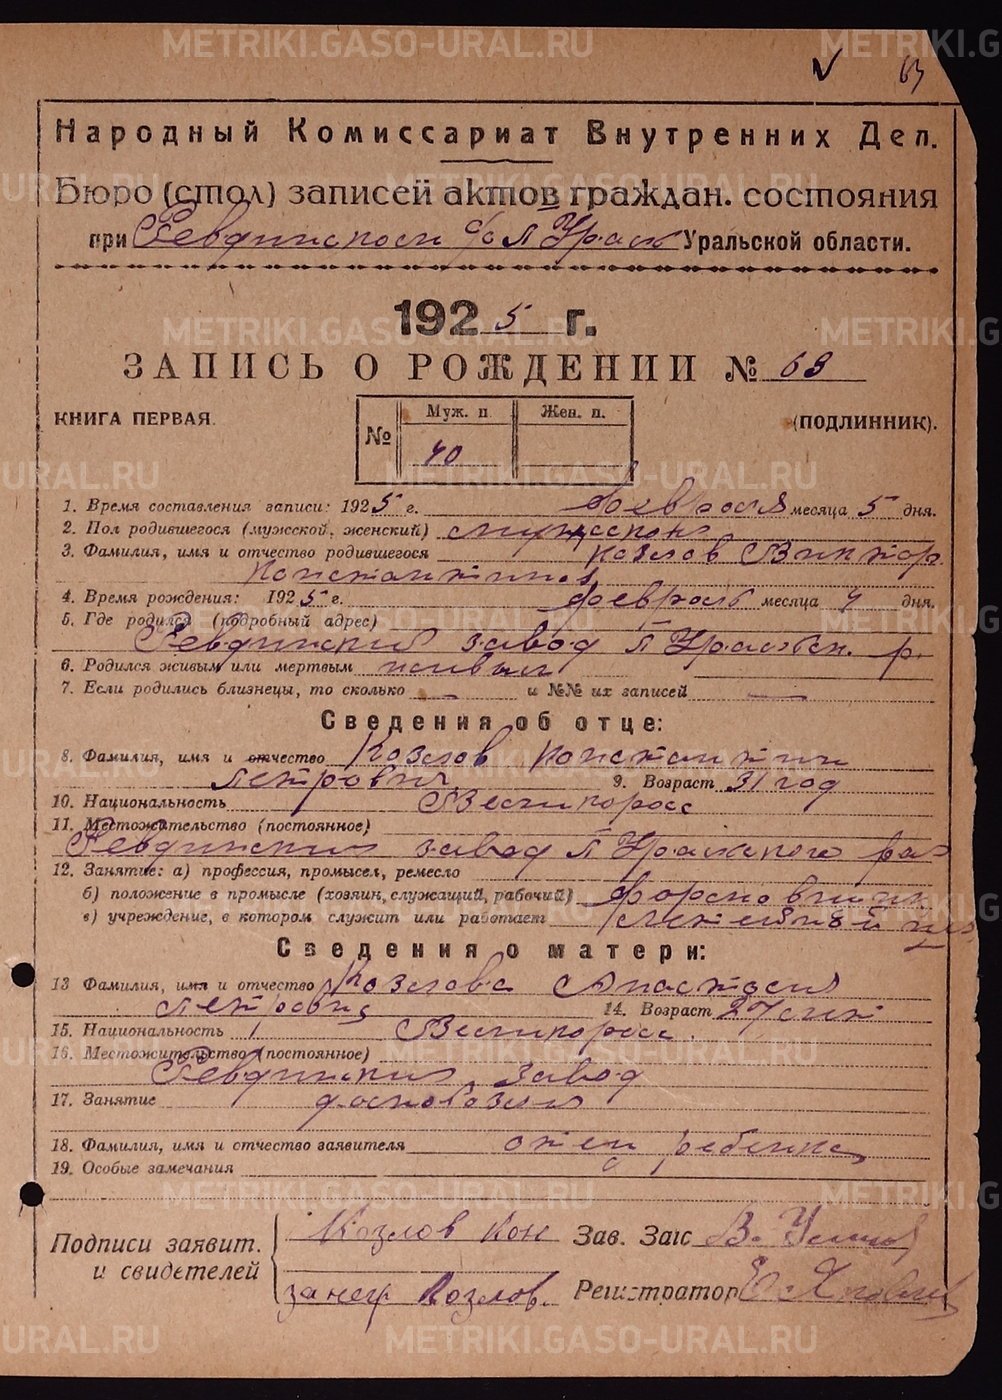 METRIKI.GASO-URAL.RU
63
Народный Комиссариат Внутренних Дел.
Бюро (стол) записей актов граждан. состояния
при Ревдинском с/с П Урал Уральской области.
1925 г.
ЗАПИСЬ О РОЖДЕНИИ № 63
КНИГА ПЕРВАЯ.
№ Муж. п. Жен. п.
40
(ПОДЛИННИК).
1. Время составления записи: 1925 г. февраля месяца 5 дня.
2. Пол родившегося (мужской, женский) мужеской
3. Фамилия, имя и отчество родившегося Козлов Виктор
Константинов
4. Время рождения: 1925 г. февраль месяца 4 дня.
5. Где родился (подробный адрес)
Ревдинский завод П Уральск. р.
6. Родился живым или мертвым живым
7. Если родились близнецы, то сколько — и №№ их записей —
Сведения об отце:
8. Фамилия, имя и отчество Козлов Константин
Петрович 9. Возраст 31 год
10. Национальность Великоросс
11. Местожительство (постоянное)
Ревдинский завод П Уральского ра
12. Занятие: а) профессия, промысел, ремесло
б) положение в промысле (хозяин, служащий, рабочий) формовщик
в) учреждение, в котором служит или работает литейный цех
Сведения о матери:
13 Фамилия, имя и отчество Козлова Анастасия
Петровна 14. Возраст 27 лет
15. Национальность Великоросс.
16. Местожительство (постоянное)
Ревдинский завод
17. Занятие домохозяй
18. Фамилия, имя и отчество заявителя отец ребенка
19. Особые замечания
Подписи заявит. и свидетелей
Козлов Кон
за негр Козлов.
Зав. Загс
Регистратор